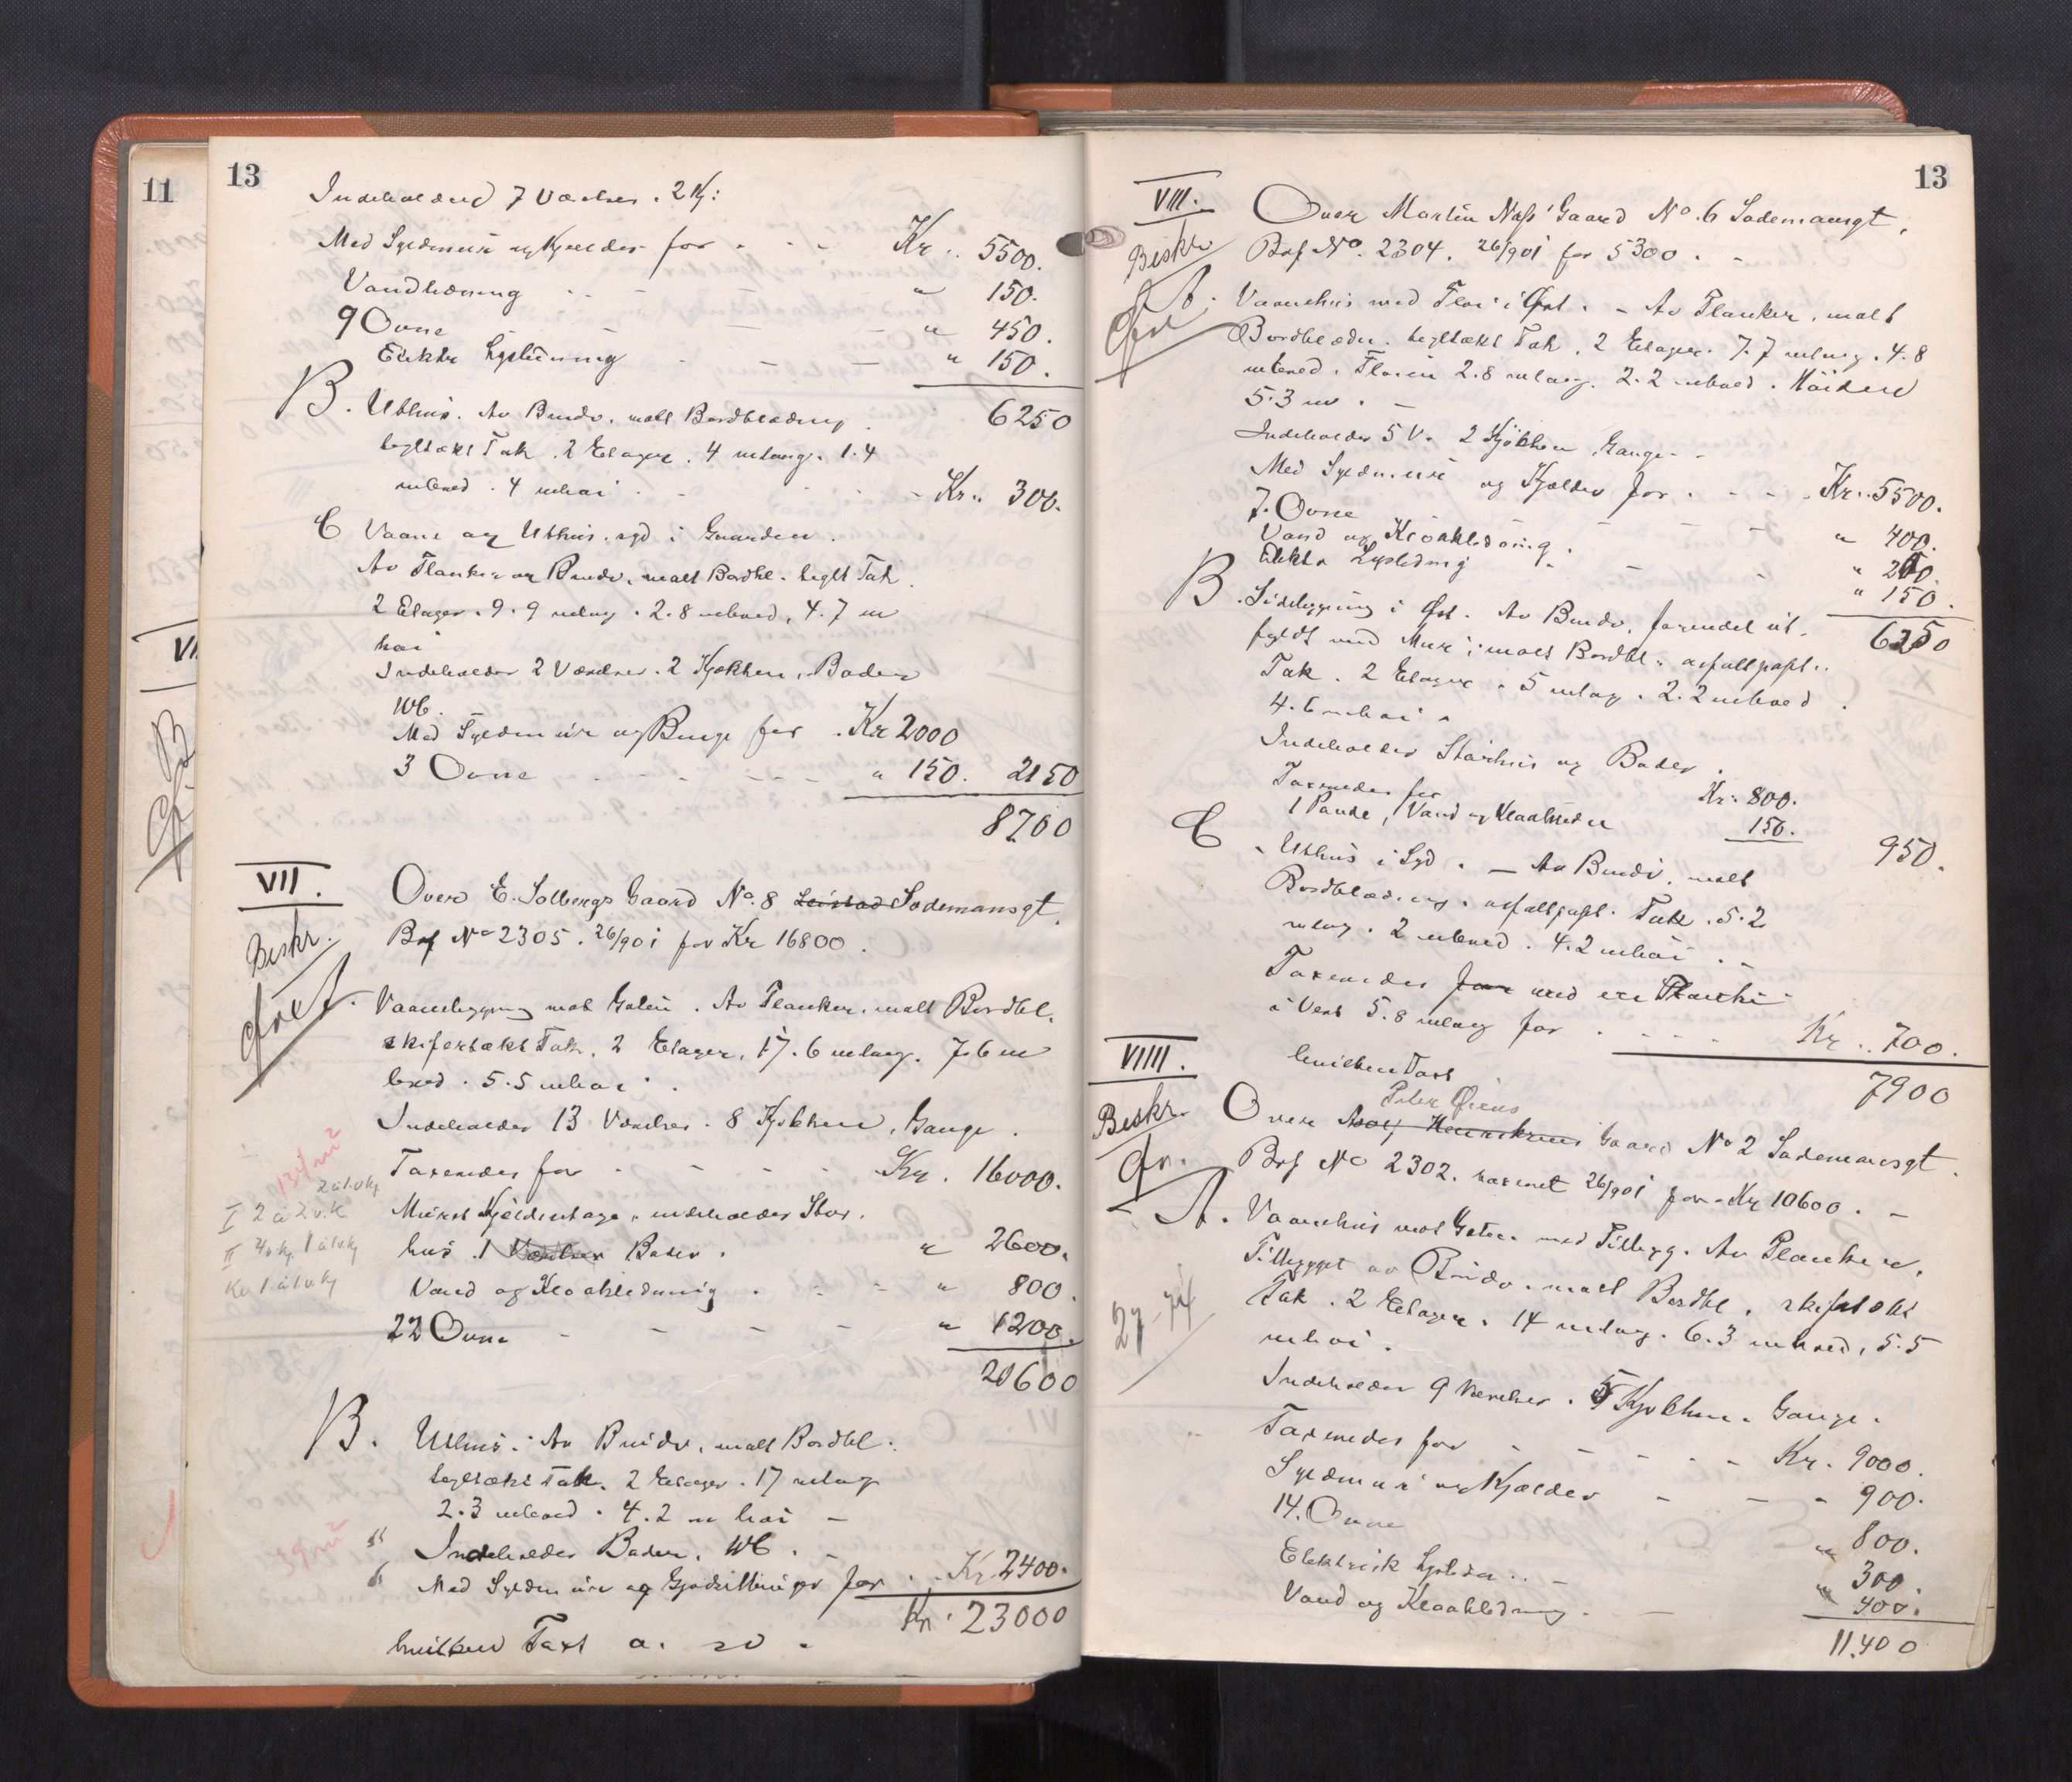 11
13
Indeholdend 7 Værelser. 2 Kj:
Med Syldmur og Kjælder for - - - Kr. 5500.
Vandledning - - " 150.
9 Ovne - - " 450.
Elektr Lysledning - - " 150.
6250
B. Uthus. Av Bindv. malt Bordklædning
tegltækt Tak. 2 Etager. 4 m lang. 1.4
m bred. 4 m høi - - Kr. 300.
C Vaane og Uthus. syd i Gaarden.
Av Planker og Bindv. malt Bordkl. teglt Tak.
2 Etager. 9.9 m lang. 2.8 m bred, 4.7 m
høi
Indeholder 2 Værelser. 2 Kjøkken, Boder
WC.
Med Syldmur og Bruge for . Kr 2000
3 Ovne - - - " 150. 2150
8700
VII.
Beskr.
Over E. Solbergs Gaard No. 8 Sodemansgt.
Brf No 2305. 26/901 for Kr 16800.
Vaanebygning mot Gaten. Av Planker, malt Bordkl.
skifertækt Tak. 2 Etager, 17.6 m lang. 7.6 m
bred. 5.5 m høi.
Indeholder 13 Værelser. 8 Kjøkken, Gange.
Taxeredes for - - - Kr. 16000.
Muret Kjelderetage, indeholder Stor-
hus. 1 Boder. " 2600.
Vand og Kloakledning . - - " 800.
22 Ovne - - - - " 1200.
20600
B. Uthus. Av Bindv, malt Bordkl.
tegltækt Tak. 2 Etager. 17 m lang
2.3 m bred. 4.2 m høi -
Indeholder Boder. WC. -
Med Syldmur og for . . Kr 2400.
Kr. 23000
hvilken Taxt a. 
13
VIII.
Beskr.
Over Martin Næss' Gaard No. 6 Sodemansgt.
Brf No. 2304. 26/901 for 5300. -
A. Vaanehus med Fløi i Øst. - Av Planker, malt
Bordklædn. tegltækt Tak. 2 Etager. 7.7 m lang. 4.8
m bred. Fløien 2.8 m lang. 2.2 m bred. Høiden
5.3 m. -
Indeholder 5 V. 2 Kjøkken Gange. -
Med Syldmur og Kjælder for . - - Kr. 5500.
7. Ovne - - " 400.
Vand og Kloakledning. - - " 200.
Elektr Lysledning - " 150.
6250
B. Sidebygning i Øst. Av Bindv. forendel ut-
fyldt med Mur, malt Bordkl. asfaltpapt.
Tak. 2 Etager. 5 m lang. 2.2 m bred.
4.6 m høi.
Indeholder og Boder.
Taxeredes for Kr. 800.
1 Pande, Vand og Kloakleder 150.
950.
C. Uthus i Syd. - Av Bindv. malt
Bordklædning. asfaltpapt. Tak. 5.2
m lang. 2 m bred. 4.2 m høi. -
Taxeredes for med
i Vest 5.8 m lang for . - - - Kr. 700.
hvilken Taxt
7900
VIIII.
Beskr.
Peter
Over Gaard No 2 Sodemansgt.
Brf No 2302. taxeret 26/901 for - Kr 10600. -
A. Vaanehus mot Gaten. med Tilbyg. Av Planker,
Tilbygget av Bindv. malt Bordkl. skifertækt
Tak. 2 Etager. 14 m lang. 6.3 m bred, 5.5
m høi.
Indeholder 9 Værelser. 5 Kjøkken. Gange.
Taxeredes for - - - Kr. 9000.
Syldmur og Kjælder - - - 900.
14. Ovne " 800.
Elektrisk Lysledn. - " 300.
Vand og Kloakledning. - " 400.
11.400